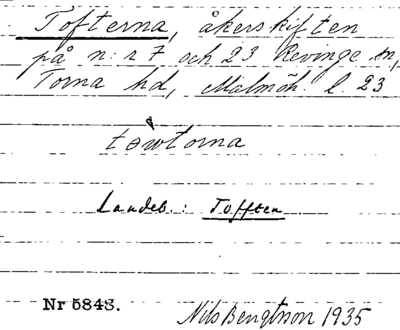 Tofterna, åkerskiften
på n:r 7 och 23 Revinge sn,
Torna hd, Malmöh. l. 23
Landeb.: Tofften
Nr 5848.
Nils Bengtsson 1935